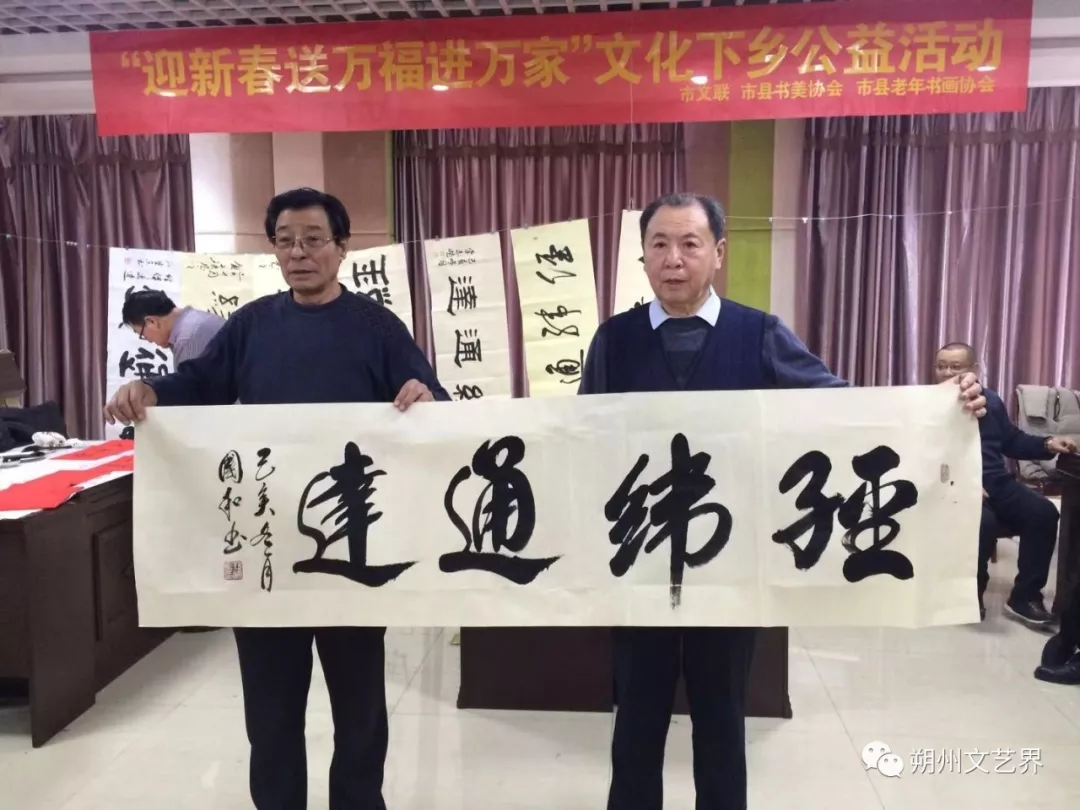 “迎新春送万福进万家”文化下乡公益活动
市文联 市县书美协会 市县老年书画协会
達通
經緯通達
己亥冬月
國和书
朔州文艺界